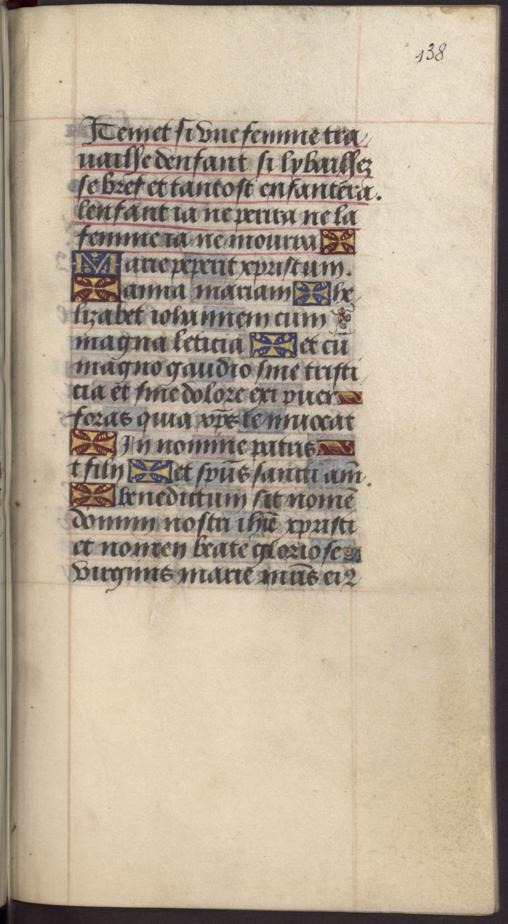 138
Item et si vne femme tra
vaille denfant si ly baillez
se bref et tantost enfantera.
lenfant ia ne perira ne la
femme ia ne mourra
Marie peperit xpristum.
anna mariam he
lizabet iohannem cum
magna leticia et cu
magno gaudio sine tristi
cia et sine dolore exi puer
foras quia xp̄s te inuocat
In nomine patris
t filii et sp̄us sancti am̄.
benedictum sit nomē
domini nostri ih̄u xpristi
et nomen beate gloriose
virginis marie m̄ris ei